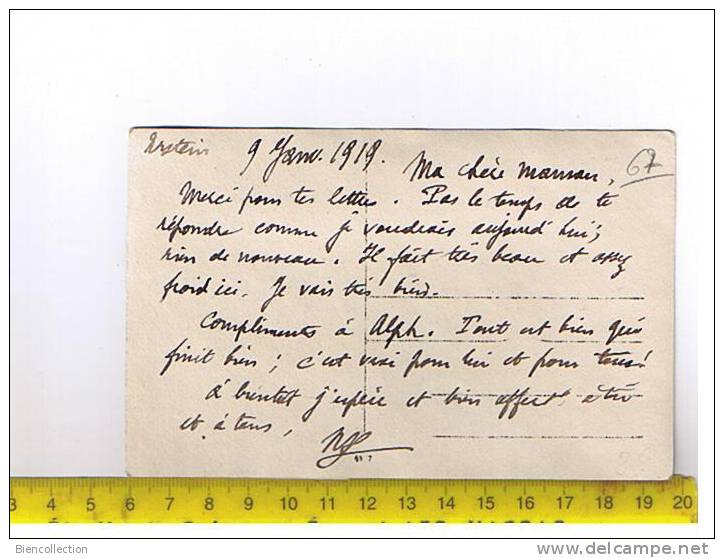 Erstein 9 Janv. 1919.
Ma chère maman, 67
Merci pour tes lettres. Pas le temps de te
répondre comme je voudrais aujourd'hui;
rien de nouveau. Il fait très beau et assez
froid ici. Je vais très bien.
Compliments à Alph. Tout est bien qui
finit bien; c'est vrai pour lui et pour tous!
à bientôt j'espère et bien affect. à toi
et à tous,
3 4 5 6 7 8 9 10 11 12 13 14 15 16 17 18 19 20
Biencollection
delcampe.net